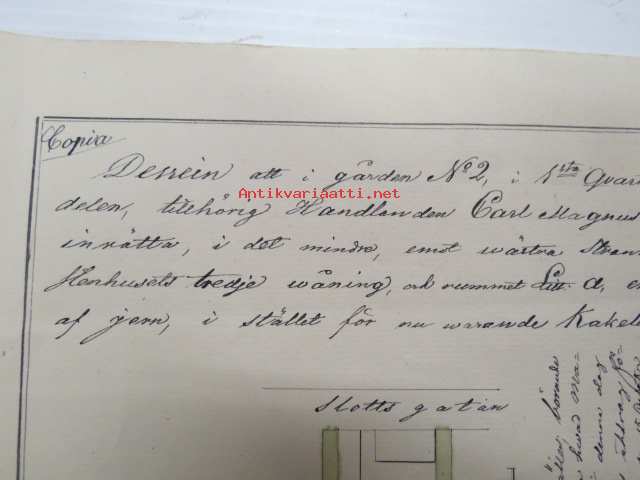 Copia
Dessein att i gården No 2, i 1sta Quar
delen, tillhörig Handlanden Carl Magnus
inrätta, i det mindre, emot wästra Stran
Stenhusets tredje wåning, och rummet Litt. a, e
af jern, i stället för nu warande Kakel
Slotts gatan
Antikvariaatti.net